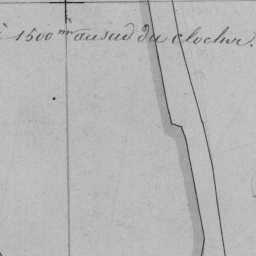 à 1500 m au sud du clocher.